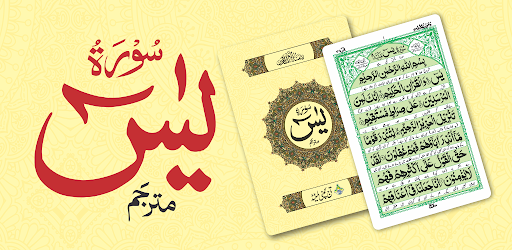 سُوْرَةُ
يٰسٓ
مترجَم
سورة
يٰسٓ
مترجم
بِسْمِ اللهِ الرَّحْمٰنِ الرَّحِيْمِ
يٰسٓ وَالْقُرْاٰنِ الْحَكِيْمِ اِنَّكَ لَمِنَ
الْمُرْسَلِيْنَ عَلٰى صِرَاطٍ مُّسْتَقِيْمٍ
تَنْزِيْلَ الْعَزِيْزِ الرَّحِيْمِ لِتُنْذِرَ قَوْمًا
مَّا اُنْذِرَ اٰبَاؤُهُمْ فَهُمْ غٰفِلُوْنَ لَقَدْ
حَقَّ الْقَوْلُ عَلٰى اَكْثَرِهِمْ فَهُمْ
لَا يُؤْمِنُوْنَ اِنَّا جَعَلْنَا فِيْ اَعْنَاقِهِمْ